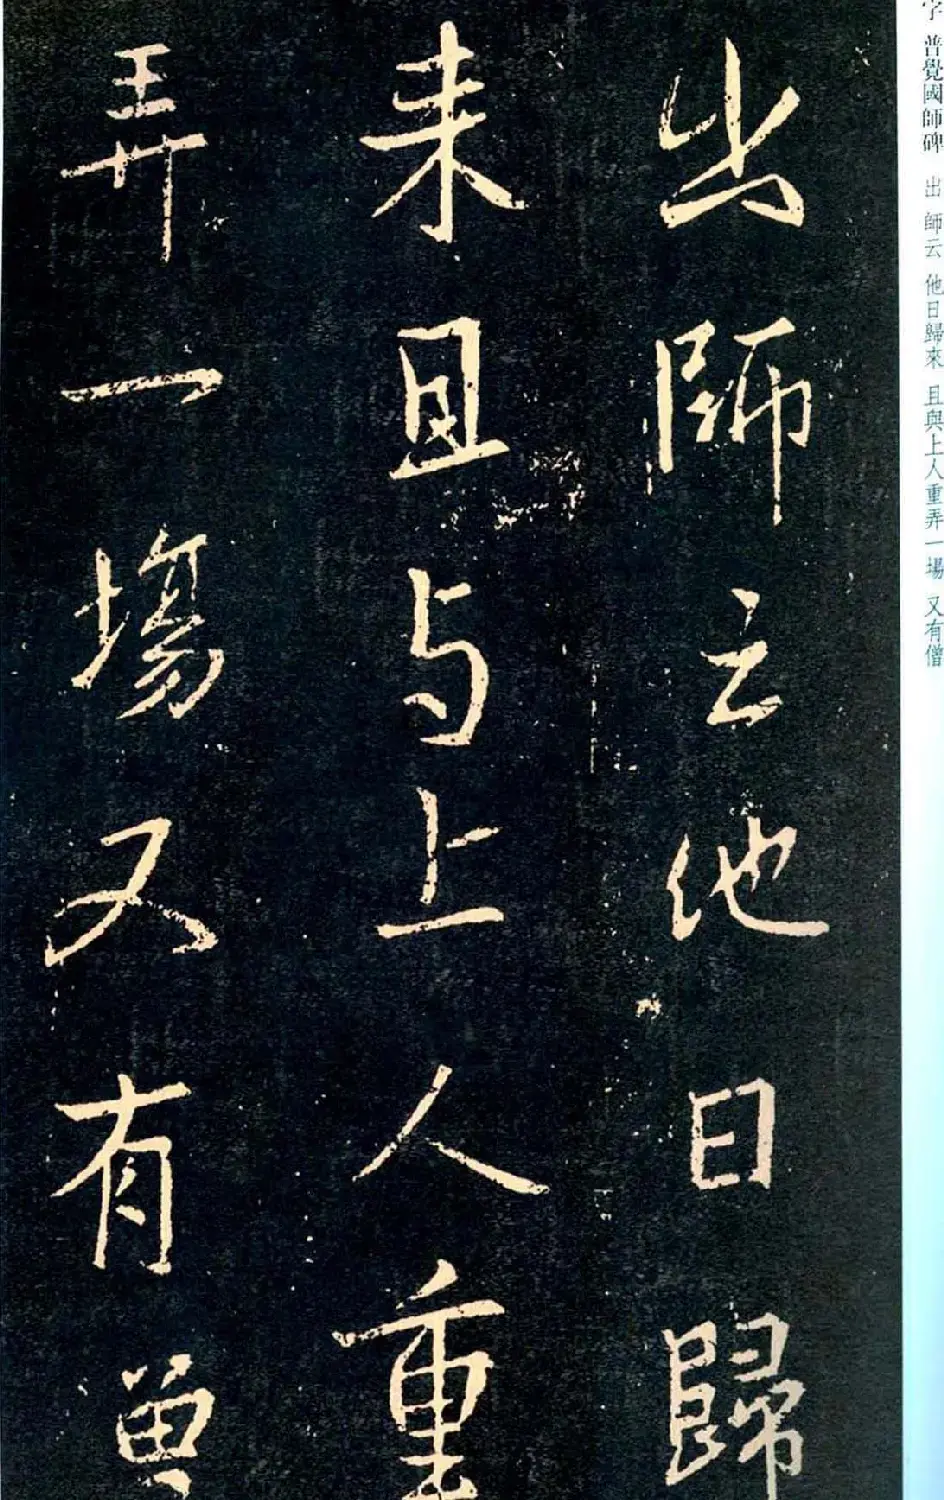 出師云他日歸
来且与上人重
弄一場又有曾
字 普覺國師碑 出 師云 他日歸來 且與上人重弄一場 又有僧